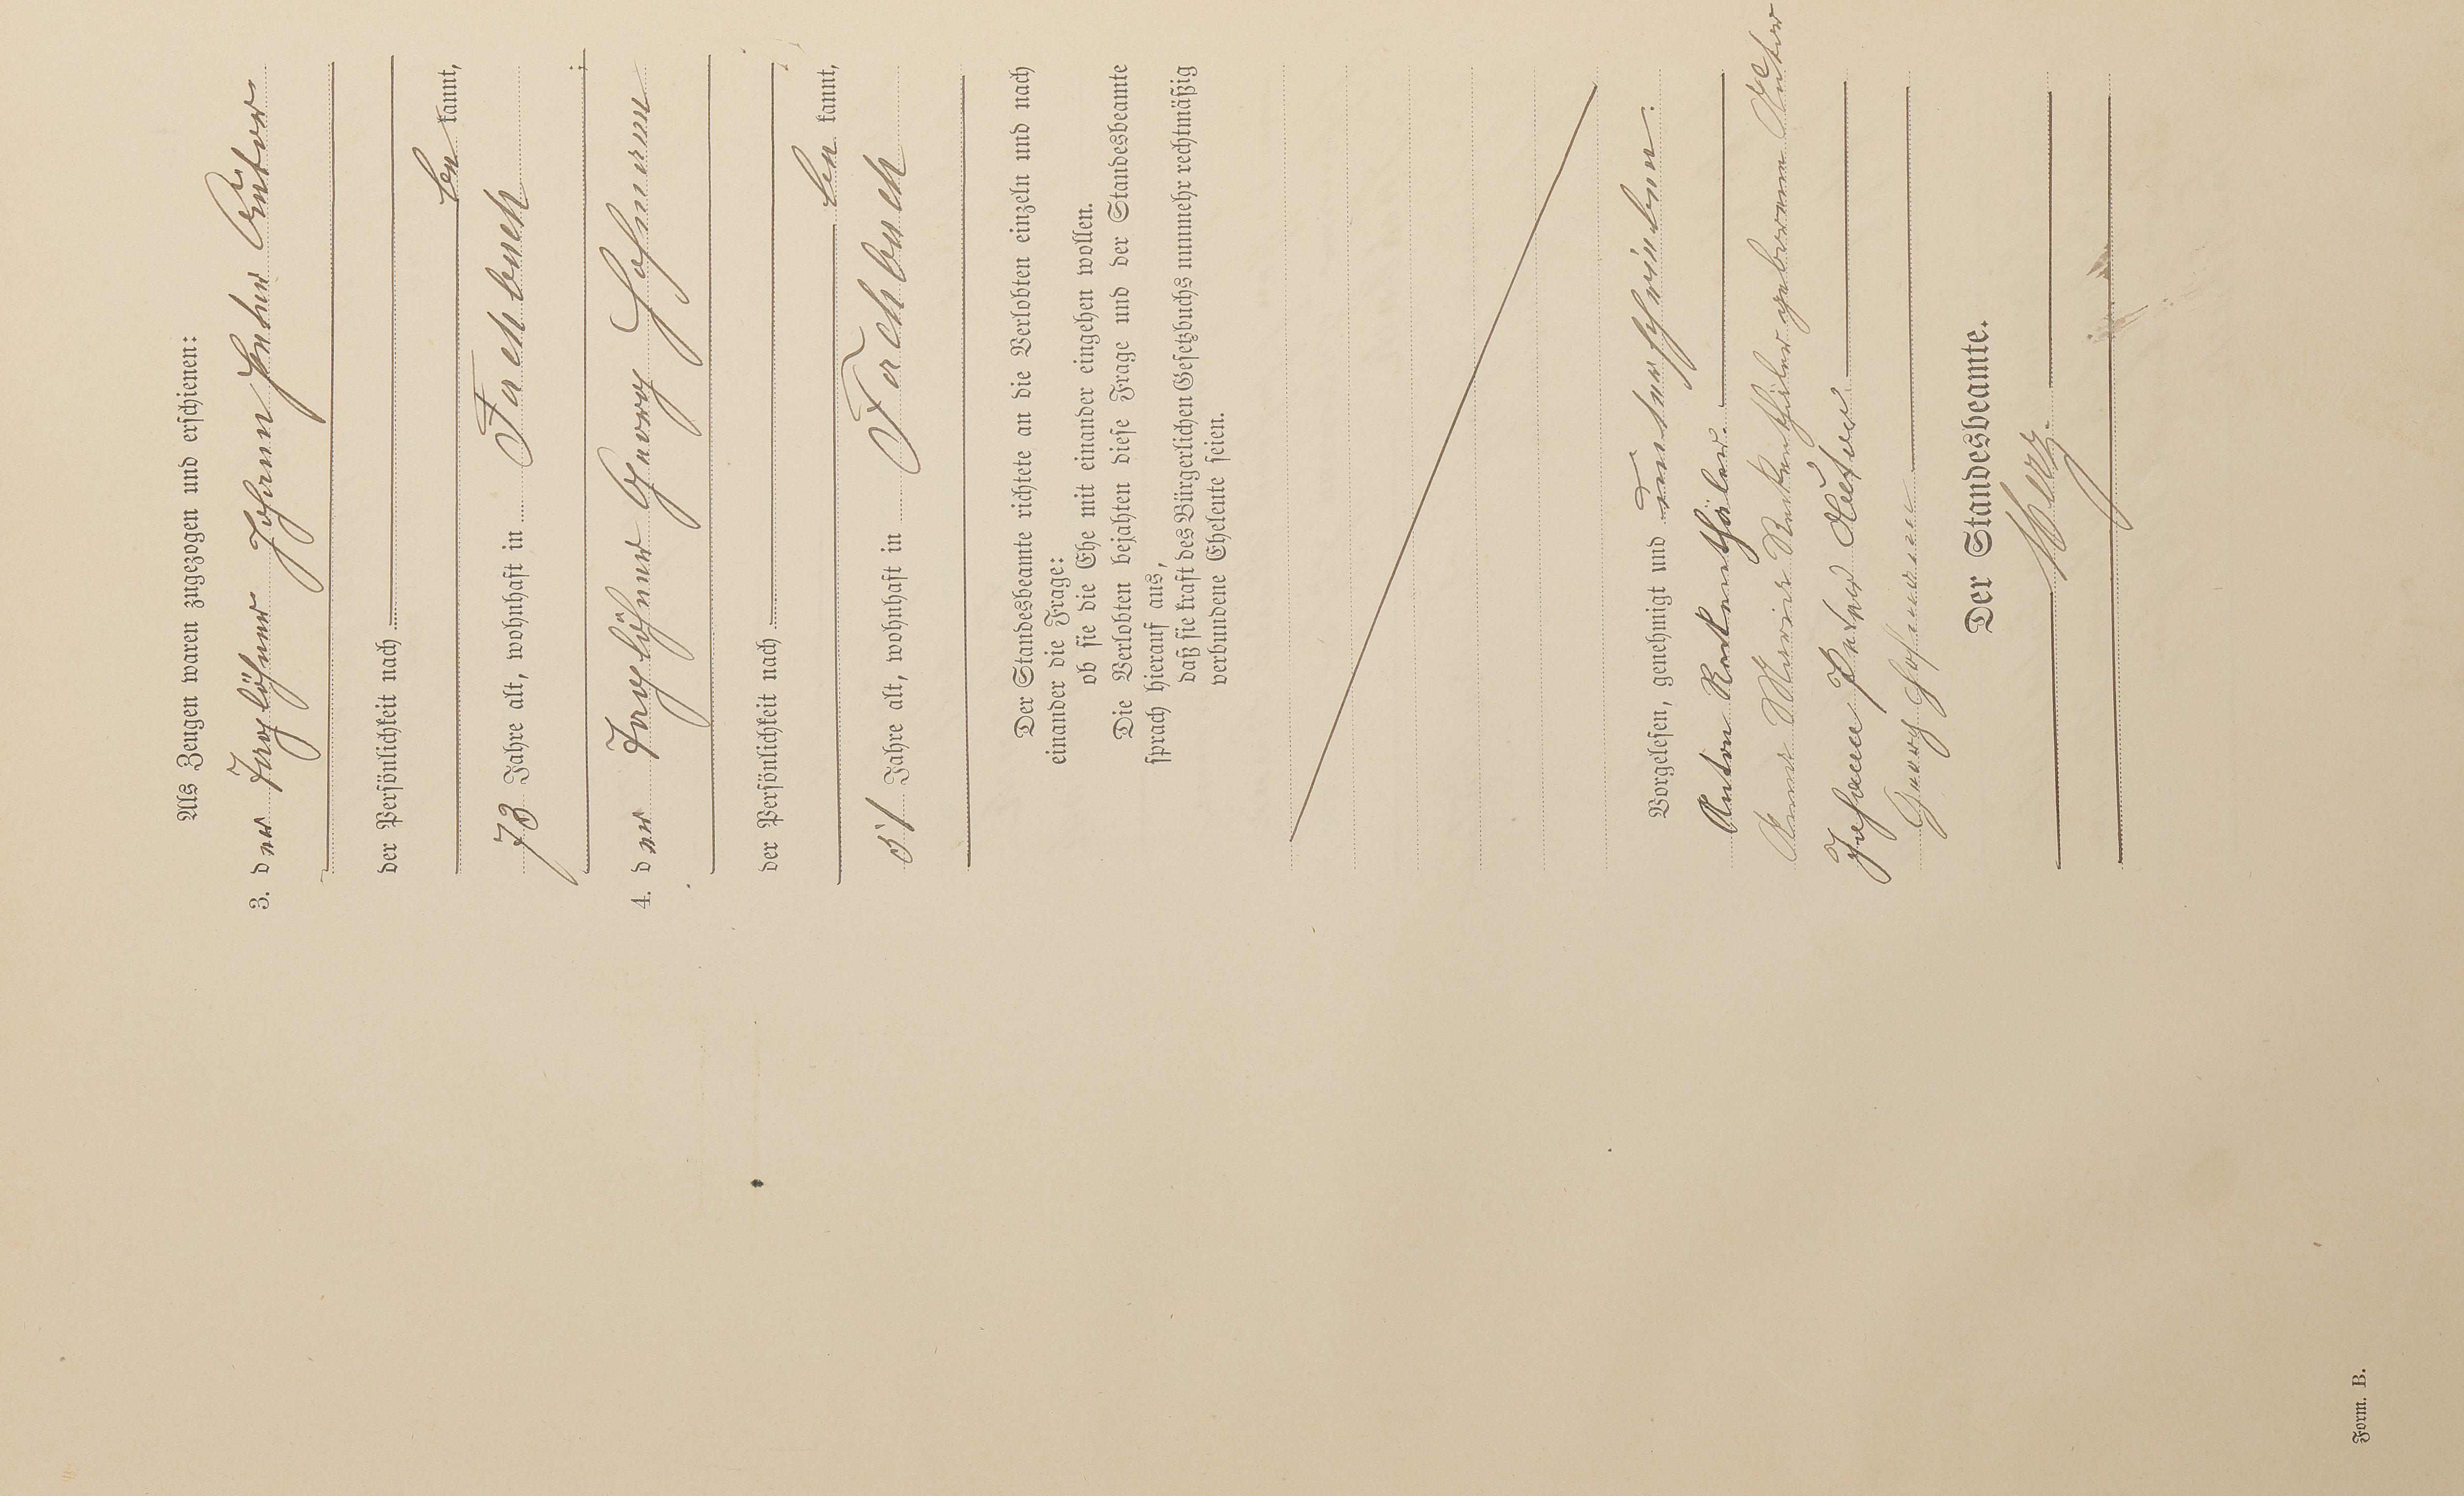 Als Zeugen waren zugezogen und erschienen:
3. der Taglöhner Johann Peter
der Persönlichkeit nach
be kannt,
73 Jahre alt, wohnhaft in Fachbach
4. der Taglöhner Georg Hofmann
;
der Persönlichkeit nach
be kannt,
51 Jahre alt, wohnhaft in Fachbach
Der Standesbeamte richtete an die Verlobten einzeln und nach
einander die Frage:
ob sie die Ehe mit einander eingehen wollen.
Die Verlobten bejahten diese Frage und der Standesbeamte
sprach hierauf aus,
daß sie kraft des Bürgerlichen Gesetzbuchs nunmehr rechtmäßig
verbundene Eheleute seien.
Vorgelesen, genehmigt und unterschrieben:
Anton
Anna Maria geborene
Johann Peter
Georg Hofmann
Der Standesbeamte.
Form. B.